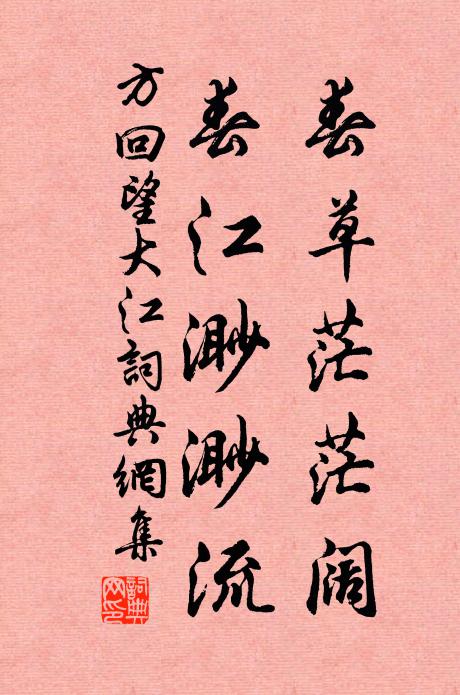 春草茫茫阔
春江渺渺流
方回望大江詞典網集
詞典
網印